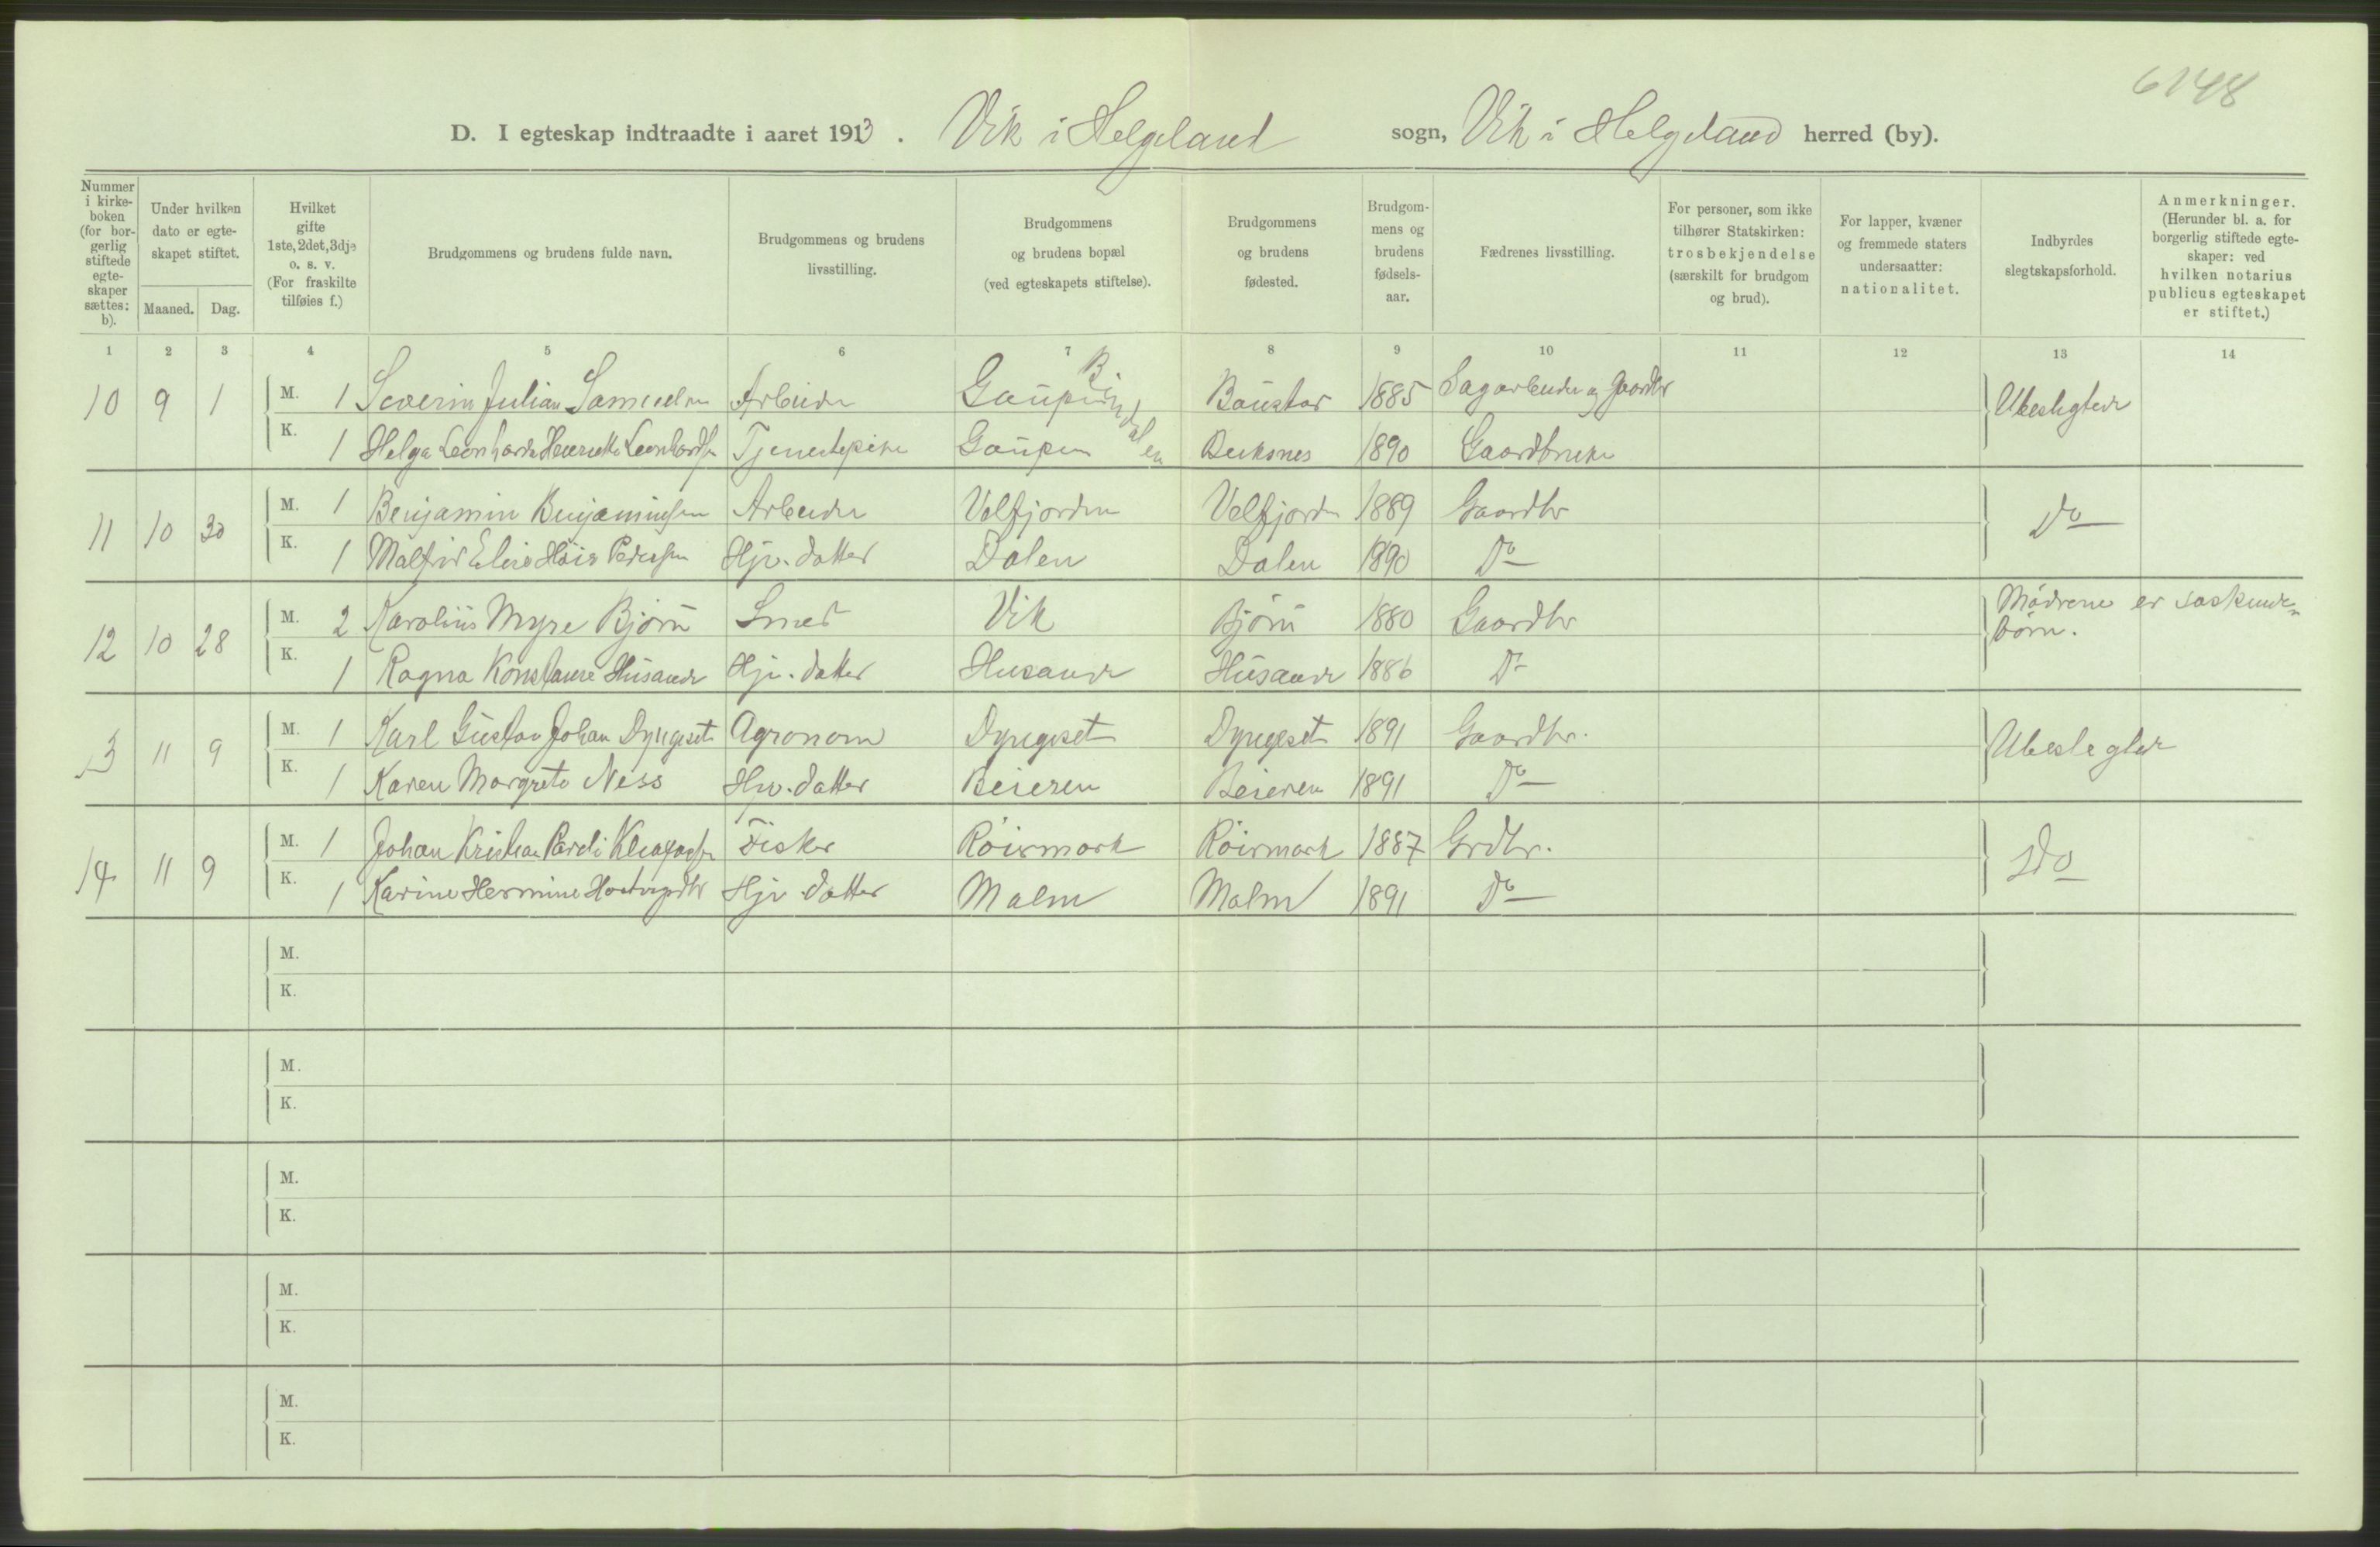 6148
D. I egteskap indtraadte i aaret 1913. Vik i Helgeland sogn, Vik i Helgeland herred (by).
Nummer i kirkeboken (for borgerlig stiftede egteskaper sættes: b).
Under hvilken dato er egteskapet stiftet.
Maaned. Dag.
Hvilket gifte 1ste, 2det, 3dje o. s. v. (For fraskilte tilføies f.)
Brudgommens og brudens fulde navn.
Brudgommens og brudens livsstilling.
Brudgommens og brudens bopæl (ved egteskapets stiftelse).
Brudgommens og brudens fødested.
Brudgommens og brudens fødsels-aar.
Fædrenes livsstilling.
For personer, som ikke tilhører Statskirken: trosbekjendelse (særskilt for brudgom og brud).
For lapper, kvæner og fremmede staters undersaatter: nationalitet.
Indbyrdes slegtskapsforhold.
Anmerkninger. (Herunder bl. a. for borgerlig stiftede egteskaper: ved hvilken notarius publicus egteskapet er stiftet.)
1 2 3 4 5 6 7 8 9 10 11 12 13 14
10 9 1 M. 1 Severin Julian Samuelsen Arbeider Gaupen Bindalen Baustad 1885 Sagarbeider og Gaardbr Ubeslegtede
K. 1 Helga Leonharda Henriette Leonhardsen Tjenestepike Gaupen 1890 Gaardbruker
11 10 30 M. 1 Benjamin Benjaminsen Arbeider Velfjorden Velfjorden 1889 Gaardbr Do
K. 1 Malfrid Elise Pedersen Hjv. datter Dalen Dalen 1890 Do
12 10 28 M. 2 Karolius Myre Bjørn Smed Vik Bjørn 1880 Gaardbr Mødrene er søskende-
børn.
K. 1 Ragna Konstanse Husande Hjv. datter Husande Husande 1886 Do
13 11 9 M. 1 Karl Gustav Johan Dypgeset Agronom Dypgeset Dypgeset 1891 Gaardbr. Ubeslegtede
K. 1 Karen Margrete Ness Hjv. datter Beieren Beieren 1891 Do
14 11 9 M. 1 Johan Kristian Pareli Fisker Røirmark Røirmark 1887 Grdbr. Do
K. 1 Karine Hermine Hjv datter Malm Malm 1891 Do
M.
K.
M.
K.
M.
K.
M.
K.
M.
K.